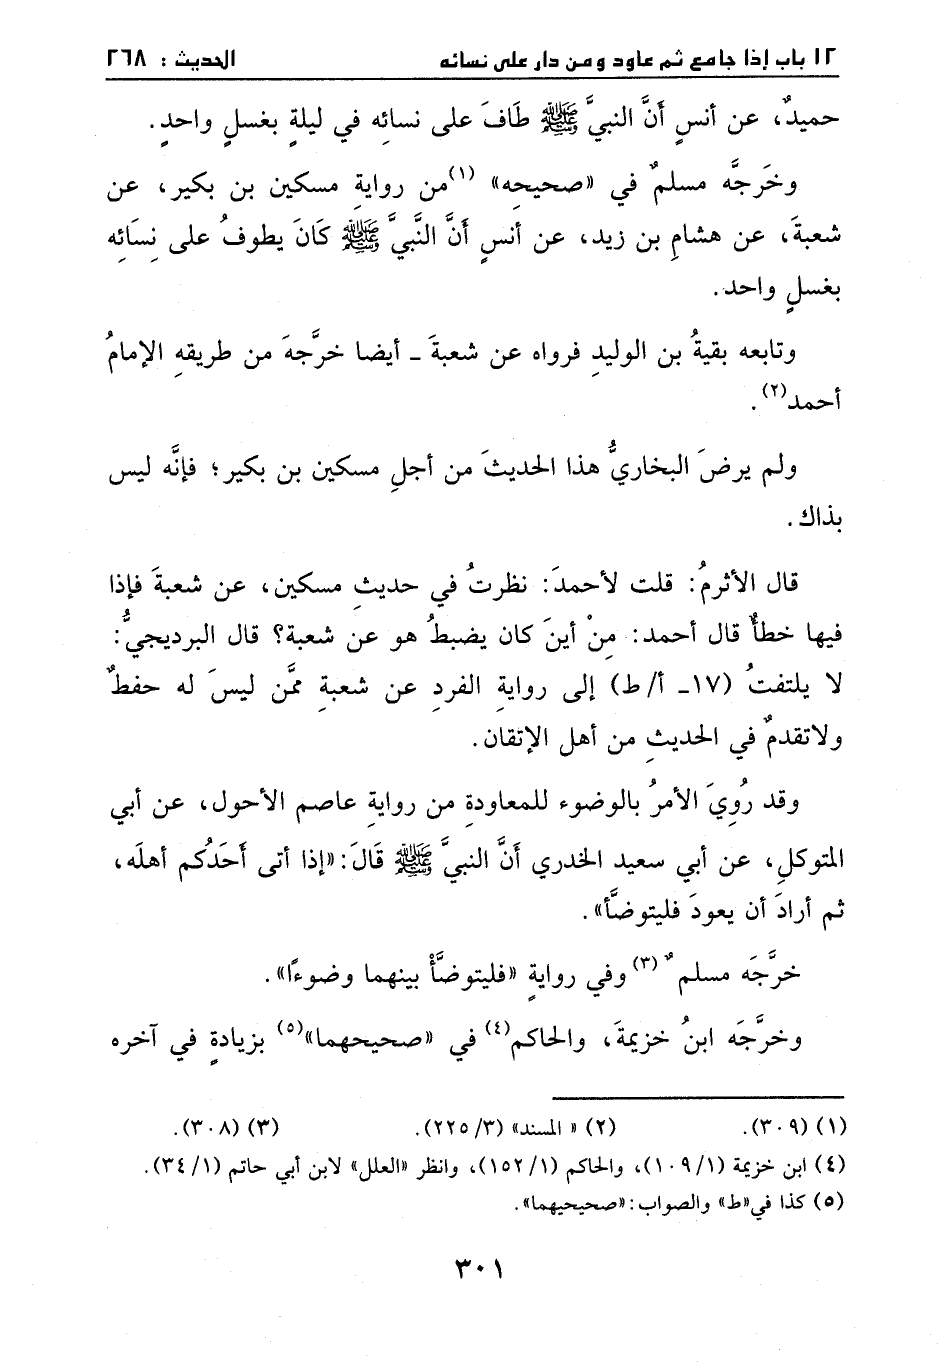 ١٢ باب إذا جامع ثم عاود ومن دار على نسائه الحديث : ٢٦٨
حميدٌ، عن أنسٍ أَنَّ النبيَّ ﷺ طَافَ على نسائِه في ليلةٍ بغسلٍ واحدٍ.
وخَرجَّه مسلمٌ في «صحيحِه» (١) من روايةِ مسكين بن بكير، عن
شعبةَ، عن هشامِ بن زيد، عن أنسٍ أَنَّ النَّبيَّ ﷺ كَانَ يطوفُ على نِسَائِه
بغسلٍ واحد.
وتابعه بقيةُ بن الوليدِ فرواه عن شعبةَ ـ أيضا خرَّجهَ من طريقهِ الإمامُ
أحمد(٢).
ولم يرضَ البخاريُّ هذا الحديثَ من أجلِ مسكين بن بكير؛ فإنَّه ليس
بذاك.
قال الأثرمُ: قلت لأحمدَ: نظرتُ في حديثِ مسكين، عن شعبةَ فإذا
فيها خطأٌ قال أحمد: مِنْ أينَ كان يضبطُ هو عن شعبة؟ قال البرديجيُّ:
لا يلتفتُ (١٧ـ أ/ ط) إلى روايةِ الفردِ عن شعبةِ ممَّن ليسَ له حفظٌ
ولاتقدمٌ في الحديثِ من أهل الإتقان.
وقد رُوِيَ الأمرُ بالوضوء للمعاودةِ من روايةِ عاصم الأحول، عن أبي
المتوكلِ، عن أبي سعيد الخدري أَنَّ النبيَّ ﷺ قَالَ: «إذا أتى أَحَدُكم أهلَه،
ثم أرادَ أن يعودَ فليتوضَّأ».
خرَّجَه مسلم ٌ (٣) وفي روايةٍ «فليتوضَّأْ بينهما وضوءًا».
وخرَّجَه ابنُ خزيمةَ، والحاكم(٤) في «صحيحهما»(٥) بزيادةٍ في آخره
(١) (٣٠٩). (٢) « المسند» (٣/ ٢٢٥). (٣) (٣٠٨).
(٤) ابن خزيمة (١/ ١٠٩)، والحاكم (١/ ١٥٢)، وانظر «العلل» لابن أبي حاتم (١/ ٣٤).
(٥) كذا في«ط» والصواب: «صحيحيهما».
٣٠١